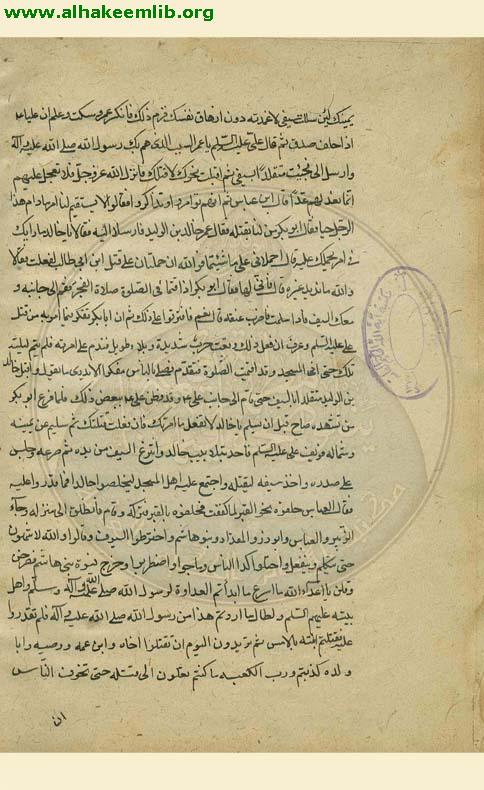 www.alhakeemlib.org
يمينك لئن سللت سيفي لاعمدته دون ازهاق نفسك فرم ذلك فانكر عمر وسكت وعلم ان عليا ع
اذا حلف صدق ثم قال علي عليه السلام يا عمر الست الذي هم بك رسول الله صلى الله عليه وآله
وارسل الى فجئت متقلدا سيفي ثم اقبلت نحوك لاقتلك فانزل الله عز وجل فلا تعجل عليهم
انما نعد لهم عدا قال ابن عباس ثم انهم توامروا وتذاكروا فقالوا لا يستقيم لنا امر مادام هذا
الرجل حيا فقال ابو بكر من لنا بقتله فقال عمر خالد بن الوليد فارسلا اليه فقالا يا خالد ما رايك
في امر نحملك عليه قال احملاني على ما شئتما فو الله ان حملتماني على قتل ابن ابي طالب لفعلت فقالا
والله ما نريد غيره قال فاني لها فقال ابو بكر اذا قمنا في الصلوة صلاة الفجر فقم الى جانبه و
معك السيف فاذا سلمت فاضرب عنقه قال نعم فافترقوا على ذلك ثم ان ابا بكر تفكر فيما امر به من قتل
علي عليه السلام وعرف ان فعل ذلك وقعت حرب شديدة وبلاء طويل فندم على امره فلم ينم ليلته
تلك حتى اتى المسجد وقد اقيمت الصلوة فتقدم فصلى بالناس مفكرا لا يدري ما يقول واقبل خالد
بن الوليد متقلدا السيف حتى قام الى جانب علي ع وقد فطن علي ع ببعض ذلك فلما فرغ ابو بكر
من تشهده صاح قبل ان يسلم يا خالد لا تفعل ما امرتك فان فعلت قتلتك ثم سلم عن يمينه
وشماله فوثب علي عليه السلام فاخذ بتلابيب خالد وانتزع السيف من يده ثم صرعه وجلس
على صدره واخذ سيفه ليقتله واجتمع عليه اهل المسجد ليخلصوا خالدا فما قدروا عليه
فقال العباس حلفوه بحق القبر لما كففت فحلفوه بالقبر فتركه وقام فانطلق الى منزله وجاء
الزبير والعباس وابو ذر والمقداد وبنو هاشم واخترطوا السيوف وقالوا والله لا تنتهون
حتى يتكلم ويفعل واختلف الناس وماجوا واضطربوا وخرج نسوة بني هاشم فصرخن
وقلن يا اعداء الله ما اسرع ما ابدأتم العداوة لرسول الله صلى الله عليه وآله وسلم واهل
بيته عليهم السلم ولطالما اردتم هذا من رسول الله صلى الله عليه وآله فلم تقدروا
عليه فقتلتم ابنته بالامس ثم تريدون اليوم ان تقتلوا اخاه وابن عمه ووصيه وابا
ولده كذبتم ورب الكعبه ما كنتم تصلون الى قتله حتى تخوف الناس
ان